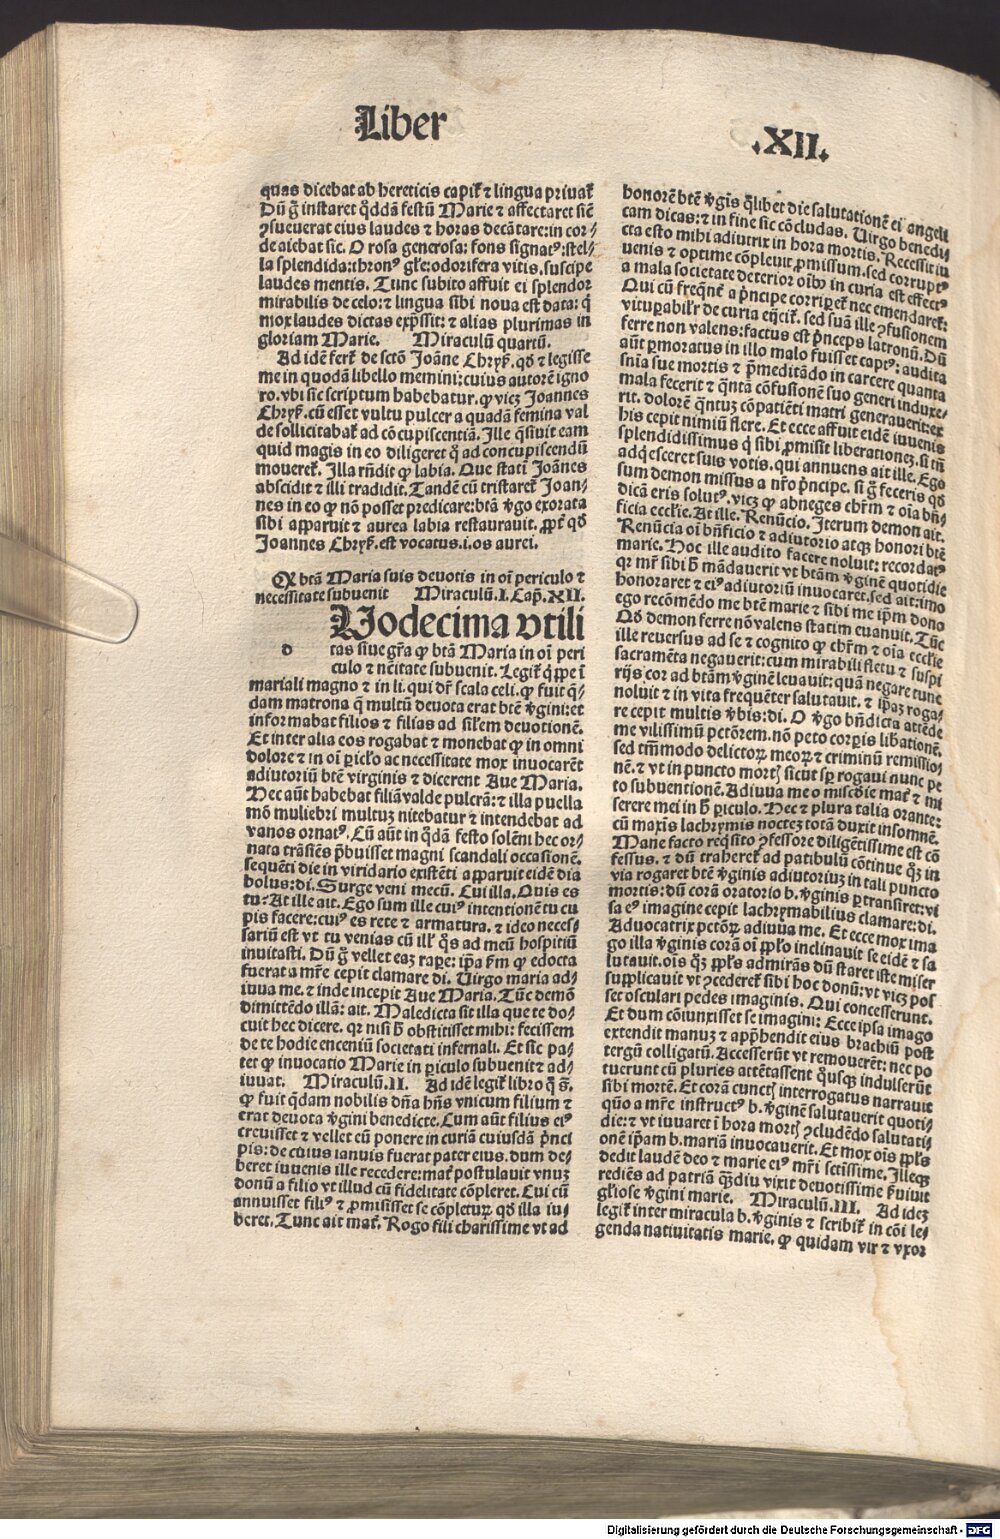 Liber
.XII.
quas dicebat ab hereticis capiť ⁊ lingua privať
Dū g̃ instaret q̇ddā festū Marie ⁊ affectaret sič
ꝯsueuerat eius laudes ⁊ horas decātare: in cor⸗
de aiebat sic. O rosa generosa: fons signatꝰ: stel⸗
la splendida: thronꝰ gl̃e: odorifera vitis. suscipe
laudes mentis. Tunc subito affuit ei splendor
mirabilis de celo: ⁊ lingua sibi noua est data: q̃
mox laudes dictas exp̃ssit: ⁊ alias plurimas in
gloriam Marie. Miraculū quartū.
Ad idē ferť de sctō Joāne Chryš. qď ⁊ legisse
me in quodā libello memini: cuius autorē igno
ro. vbi sic scriptum habebatur. ꝙ vicꝫ Joannes
Chryš. cū esset vultu pulcer a quadā femina val
de sollicitabať ad cōcupiscentiā. Ille q̃siuit eam
quid magis in eo diligeret q̃ ad concupiscendū
moueret̃. Illa rn̄dit ꝙ labia. Que statī Joānes
abscidit ⁊ illi tradidit. Tandē cū tristaret̃ Joan⸗
nes in eo ꝙ nō posset predicare: btā v̄go exorata
sibi apparuit ⁊ aurea labia restaurauit. ꝓpť qď
Joannes Chryš. est vocatus .i. os aurei.
Qꝫ btā Maria suis deuotis in oī periculo ⁊
necessitate subuenit Miraculū .I. Cap. XII.
Uodecima vtili
d tas siue gr̃a ꝙ btā Maria in oī peri
culo ⁊ nc̄itate subuenit. Legiť q̇ppe ī
mariali magno ⁊ in li. qui dr̄ scala celi. ꝙ fuit q̄⸗
dam matrona q̄ multū deuota erat btē v̄gini: et
informabat filios ⁊ filias ad sil̃em deuotionē.
Et inter alia eos rogabat ⁊ monebat ꝙ in omni
dolore ⁊ in oī ꝑicl̃o ac necessitate mox inuocarēt
adiutoriū btē virginis ⁊ dicerent Aue Maria.
Hec aūt habebat filiā valde pulcrā: ⁊ illa puella
mō muliebri multuꝫ nitebatur ⁊ intendebat ad
vanos ornatꝰ. Cū aūt in q̇dā festo solēni hec or⸗
nata trāsiēs p̄buisset magni scandali occasionē.
sequēti die in viridario existēti apparuit eidē dia
bolus: di. Surge veni mecū. Cui illa. Quis es
tu? At ille ait. Ego sum ille cuiꝰ intentionē tu cu
pis facere: cuiꝰ es rete ⁊ armatura. ⁊ ideo neces⸗
sariū est vt tu venias cū ill̃ q̇s ad meū hospitiū
inuitasti. Dū g̃ vellet eaꝫ raꝑe: ip̄a ẜm ꝙ edocta
fuerat a mr̄e cepit clamare di. Uirgo maria ad⸗
iuua me. ⁊ inde incepit Aue Maria. Tūc demō
dimittēdo illā: ait. Maledicta sit illa que te do⸗
cuit hec dicere. qꝛ nisi h̄ obstitisset mihi: fecissem
de te hodie enceniū societati infernali. Et sic pa⸗
tet ꝙ inuocatio Marie in ꝑiculo subuenit ⁊ ad⸗
iuuat. Miraculū .II. Ad idē legiť libro q̇ s̄.
ꝙ fuit q̄dam nobilis dn̄a hn̄s vnicum filium ⁊
erat deuota v̄gini benedicte. Cum aūt filius eiꝰ
creuisset ⁊ vellet eū ponere in curiā cuiusdā p̄nci
pis: de cuius ianuis fuerat pater eius. dum de⸗
beret iuuenis ille recedere: mať postulauit vnuꝫ
donū a filio vt illud cū fidelitate cōpleret. Cui cū
annuisset filiꝰ ⁊ ꝓmisisset se cōpleturꝫ qď illa iu⸗
beret. Tunc ait mať. Rogo fili charissime vt ad
honorē btē v̄gīs q̇libet die salutationē ei angeli
cam dicas: ⁊ in fine sic cōcludas. Uirgo benedi⸗
cta esto mihi adiutrix in hora mortis. Recessit iu
uenis ⁊ optime cōpleuit ꝓmissum. sed corruptꝰ
a mala societate deterior oībꝫ in curia est effectꝰ
Qui cū freq̄nť a p̄ncipe corriꝑet̃ nec emendaret̃:
vituꝑabilr̄ de curia eijcit̃. sed suā ille ꝯfusionem
ferre non valens: factus est p̄nceps latronū. Dū
aūt ꝑmoratus in illo malo fuisset captꝰ: audita
snīa sue mortis ⁊ p̄meditādo in carcere quanta
mala fecerit ⁊ q̄ntā cōfusionē suo generi induxe⸗
rit. dolorē q̄ntuꝫ cōpatiēti matri generauerit: ex
his cepit nimiū flere. Et ecce affuit eidē iuuenis
splendidissimus q̇ sibi ꝓmisit liberationeꝫ. si tn̄
adq̇esceret suis votis. qui annuens ait ille. Ego
sum demon missus a nr̄o p̄ncipe. si g̃ feceris qď
dicā eris solutꝰ. vicꝫ ꝙ abneges chr̄m ⁊ oīa bn̄⸗
ficia eccl̃ie. At ille. Renūcio. Iterum demon ait.
Renūcia oī bn̄ficio ⁊ adiutorio atqꝫ honori btē
marie. Hoc ille audito facere noluit: recordatꝰ
qꝛ mr̄ sibi h̄ mādauerit vt btām v̄ginē quotidie
honoraret ⁊ eiꝰ adiutoriū inuocaret. sed ait: imo
ego recōmēdo me btē marie ⁊ sibi me ip̄m dono
Qď demon ferre nō valens statim euanuit. Tūc
ille reuersus ad se ⁊ cognito ꝙ chr̄m ⁊ oīa eccl̃ie
sacramēta negauerit: cum mirabili fletu ⁊ suspi
rijs cor ad btām v̄ginē leuauit: quā negare tunc
noluit ⁊ in vita frequēter salutauit. ⁊ ip̄aꝫ roga⸗
re cepit multis v̄bis: di. O v̄go bn̄dicta attēde
me vilissimū pctōrem. nō peto corꝑis libationē.
sed tm̄modo delictorꝫ meorꝫ ⁊ criminū remissio⸗
nē. ⁊ vt in puncto mortꝭ sicut sꝑ rogaui nunc pe
to subuentionē. Adiuua me o mīscdie mať ⁊ mi
serere mei in h̄ ꝑiculo. Hec ⁊ plura talia orante:
cū maxīs lachrymis nocteꝫ totā duxit insomnē.
Mane facto req̇sito ꝯfessore diligētissime est cō
fessus. ⁊ dū traheret̃ ad patibulū cōtinue q̇ꝫ in
via rogaret btē v̄ginis adiutoriuꝫ in tali puncto
mortis: dū corā oratorio b. v̄ginis ꝑtransiret: vi
sa eꝰ imagine cepit lachrymabilius clamare: di.
Aduocatrix pctōrꝫ adiuua me. Et ecce mox ima
go illa v̄ginis corā oī pp̄lo inclinauit se eidē ⁊ sa
lutauit. oīs q̇ꝫ pp̄ls admirās dū staret iste miser
supplicauit vt ꝯcederet̃ sibi hoc donū: vt vicꝫ pos
set osculari pedes imaginis. Qui concesserunt.
Et dum cōiunxisset se imagini: Ecce ipsa imago
extendit manuꝫ ⁊ app̄hendit eius brachiū post
tergū colligatū. Accesserūt vt remouerēt: nec po
tuerunt cū pluries attētassent q̇usqꝫ indulserūt
sibi mortē. Et corā cunctꝭ interrogatus narrauit
quō a mr̄e instructꝰ b. v̄ginē salutauerit quoti⸗
die: ⁊ vt iuuaret ī hora mortꝭ ꝯcludēdo salutati⸗
onē ip̄am b. mariā inuocauerit. Et mox oīs pp̄ls
dedit laudē deo ⁊ marie eiꝰ mr̄i sctīssime. Illeqꝫ
rediēs ad patriā q̄diu vixit deuotissime ẜuiuit
gl̃iose v̄gini marie. Miraculū .III. Ad ideꝫ
legiť inter miracula b. v̄ginis ⁊ scribiť in cōi le⸗
genda natiuitatis marie. ꝙ quidam vir ⁊ vxor
Digitalisierung gefördert durch die Deutsche Forschungsgemeinschaft - DFG